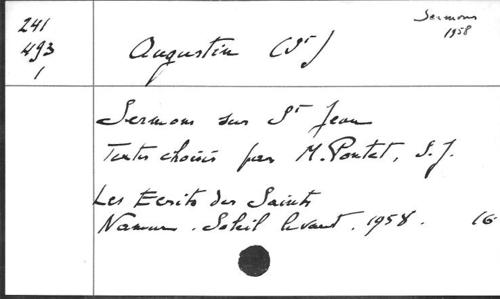 241
493
1
Sermons
1958
Augustin (St)
Sermons sur St Jean
Textes choisis par M. Pontet, S.J.
Les Ecrits des Saints
Namur. Soleil levant. 1958. 16